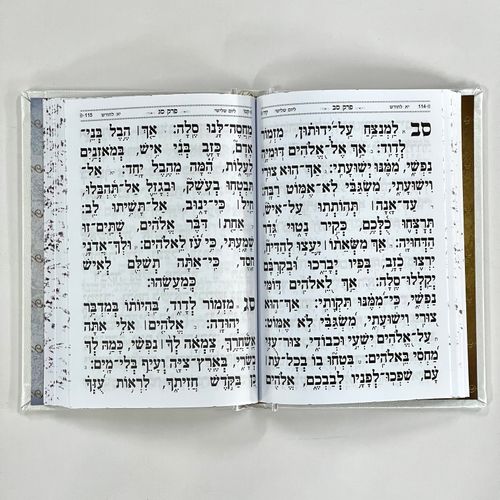 114 יא לחודש פרק סב ליום שלישי
סב לַמְנַצֵּחַ עַל־יְדוּתוּן, מִזְמוֹר
לְדָוִד: אַךְ אֶל־אֱלֹהִים דּוּמִיָּה
נַפְשִׁי, מִמֶּנּוּ יְשׁוּעָתִי: אַךְ־הוּא צוּרִי
וִישׁוּעָתִי, מִשְׂגַּבִּי לֹא־אֶמּוֹט רַבָּה:
עַד־אָנָה| תְּהוֹתְתוּ עַל־אִישׁ,
תְּרָצְּחוּ כֻלְּכֶם, כְּקִיר נָטוּי, גָּדֵר
הַדְּחוּיָה: אַךְ מִשְּׂאֵתוֹ| יָעֲצוּ לְהַדִּיחַ
יִרְצוּ כָזָב, בְּפִיו יְבָרֵכוּ, וּבְקִרְבָּם
יְקַלְלוּ־סֶלָה: אַךְ לֵאלֹהִים דּוֹמִּי
נַפְשִׁי, כִּי־מִמֶּנּוּ תִּקְוָתִי: אַךְ־הוּא
צוּרִי וִישׁוּעָתִי, מִשְׂגַּבִּי לֹא אֶמּוֹט:
עַל־אֱלֹהִים יִשְׁעִי וּכְבוֹדִי, צוּר־עֻזִּי
מַחְסִי בֵּאלֹהִים: בִּטְחוּ בוֹ בְכָל־עֵת|
עָם, שִׁפְכוּ־לְפָנָיו לְבַבְכֶם, אֱלֹהִים
יא לחודש פרק סג ליום שלישי 115
מַחֲסֶה־לָּנוּ סֶלָה: אַךְ| הֶבֶל בְּנֵי־
אָדָם, כָּזָב בְּנֵי אִישׁ, בְּמֹאזְנַיִם
לַעֲלוֹת, הֵמָּה מֵהֶבֶל יָחַד: אַל־
תִּבְטְחוּ בְעֹשֶׁק, וּבְגָזֵל אַל־תֶּהְבָּלוּ,
חַיִל| כִּי־יָנוּב, אַל־תָּשִׁיתוּ לֵב:
אַחַת| דִּבֶּר אֱלֹהִים, שְׁתַּיִם־זוּ
שָׁמָעְתִּי, כִּי עֹז לֵאלֹהִים: וּלְךָ־אֲדֹנָי
חָסֶד, כִּי־אַתָּה תְשַׁלֵּם לְאִישׁ
כְּמַעֲשֵׂהוּ:
סג מִזְמוֹר לְדָוִד, בִּהְיוֹתוֹ בְּמִדְבַּר
יְהוּדָה: אֱלֹהִים| אֵלִי אַתָּה
אֲשַׁחֲרֶךָּ, צָמְאָה לְךָ| נַפְשִׁי, כָּמַהּ לְךָ
בְשָׂרִי, בְּאֶרֶץ־צִיָּה וְעָיֵף בְּלִי־מָיִם:
כֵּן בַּקֹּדֶשׁ חֲזִיתִךָ, לִרְאוֹת עֻזְּךָ